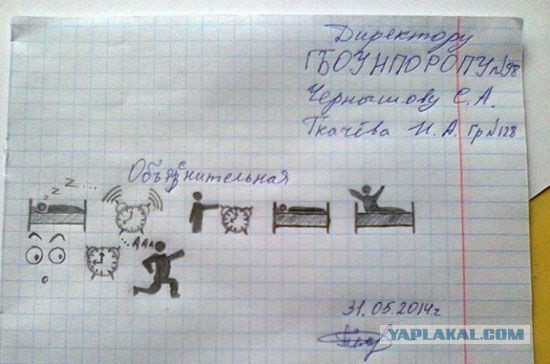 Директору
ГБОУНПОРОПУ№98
Чернышову С.А.
Ткачёва И.А. гр№128
Объяснительная
z z z...
...ААА
31.05.2014г
YAPLAKAL.COM